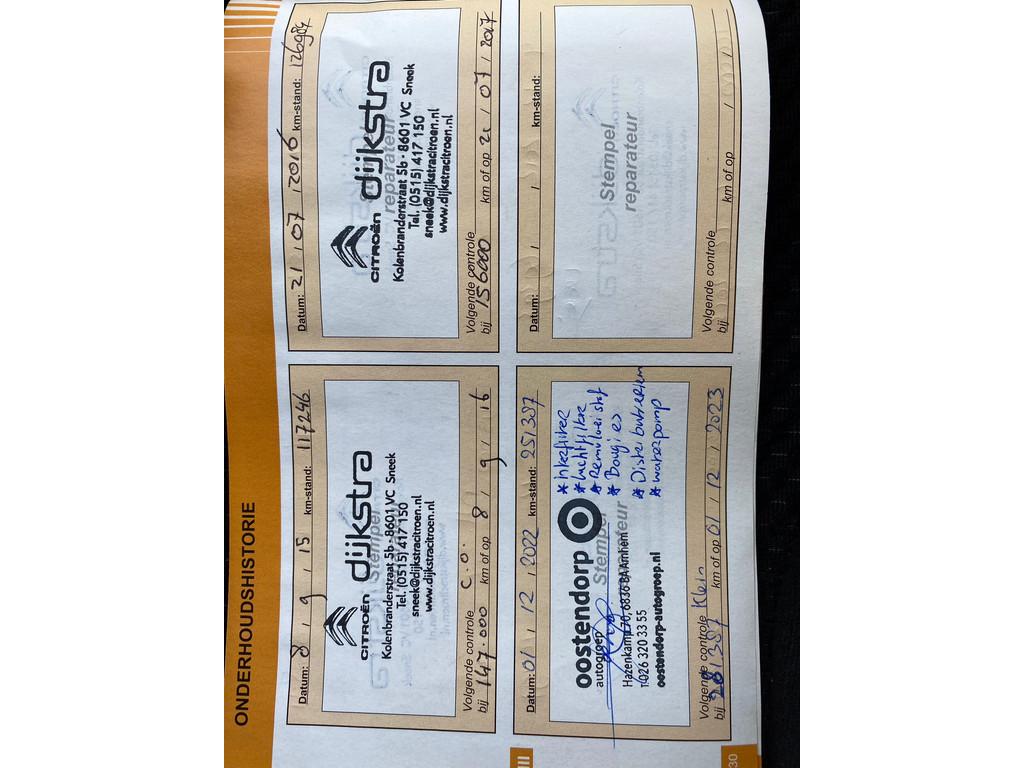 ONDERHOUDSHISTORIE
Datum: 8 / 9 / 15 km-stand: 117246
CITROËN dijkstra
Kolenbranderstraat 5b - 8601 VC Sneek
Tel. (0515) 417 150
sneek@dijkstracitroen.nl
www.dijkstracitroen.nl
Volgende controle C.O.
bij 147.000 km of op 8 / 9 / 16
Datum: 21 / 07 / 2016 km-stand: 126984
CITROËN dijkstra
Kolenbranderstraat 5b - 8601 VC Sneek
Tel. (0515) 417 150
sneek@dijkstracitroen.nl
www.dijkstracitroen.nl
reparateur
Volgende controle
bij 156000 km of op 21 / 07 / 2017
Datum: 01 / 12 / 2022 km-stand: 251387
oostendorp
autogroep
Stempel
reparateur
Hazenkamp 70, 6836 BA Arnhem
T 026 320 33 55
oostendorp-autogroep.nl
* luchtfilter
* Remvloeistof
* Bougies
* Distributieriem
* waterpomp
Volgende controle Klein
bij 281387 km of op 01 / 12 / 2023
Datum: / / km-stand:
Stempel
reparateur
Volgende controle
bij km of op / /
III
30